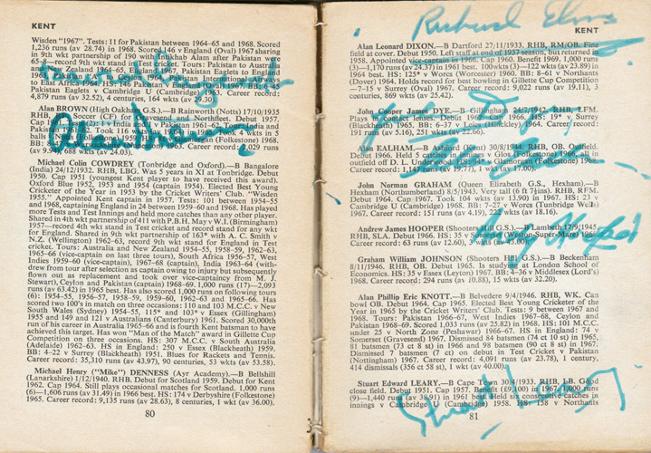 KENT
Wisden "1967". Tests: 11 for Pakistan between 1964–65 and 1968. Scored
1,236 runs (av 28.74) in 1968. Scored 146 v England (Oval) 1967 sharing
in 9th wkt stand of 190 with Intikhab Alam after Pakistan
65–8 record 9th wkt stand in Test cricket. Tours: Pakistan to Australia
New Zealand 1964–65, Pakistan Eaglets to England
to East Africa
Pakistan Eaglets v Cambridge U (Cambridge) 1963. Career record:
4,879 runs (av 32.52), 4 centuries, 164 wkts (av 29.30).
Alan BROWN (High Oakham G.S.).—B Rainworth (Notts) 17/10/1935
RHB, Soccer (CF) for Gravesend and Northfleet. Debut 1957.
Cap 1961. Tests: 2 v India and v Pakistan 1961–62. Tour: India and
Pakistan. Took 116 wkts 4 wkts in 5
BB: (Folkestone) 1968.
Career record: 2,029 runs
(av 9.94), 688 wkts (av 24.03).
Michael Colin COWDREY (Tonbridge and Oxford).—B Bangalore
(India) 24/12/1932. RHB, LBG. Was 5 years in XI at Tonbridge. Debut
1950. Cap 1951 (youngest Kent player to have received this award).
Oxford Blue 1952, 1953 and 1954 (captain 1954). Elected Best Young
Cricketer of the Year in 1953 by the Cricket Writers' Club. "Wisden
1955." Appointed Kent captain in 1957. Tests: 101 between 1954–55
and 1968, captaining England in 24 between 1959–60 and 1968. Has played
more Tests and Test Innings and held more catches than any other player.
Shared in 4th wkt partnership of 411 with P.B.H. May v W.I. (Birmingham)
1957—record 4th wkt stand in Test cricket and record stand for any wkt
for England. Shared in 9th wkt partnership of 163* with A. C. Smith v
N.Z. (Wellington) 1962–63, record 9th wkt stand for England in Test
cricket. Tours: Australia and New Zealand 1954–55, 1958–59, 1962–63,
1965–66 (vice-captain on last three tours), South Africa 1956–57, West
Indies 1959–60 (vice-captain), 1967–68 (captain), India 1963–64 (with-
drew from tour after selection as captain owing to injury but subsequently
flown out as replacement and took over vice-captaincy from M. J.
Stewart), Ceylon and Pakistan (captain) 1968–69. 1,000 runs (17)—2,093
runs (av 63.42) in 1965 best. Has also scored 1,000 runs on following tours
(6): 1954–55, 1956–57, 1958–59, 1959–60, 1962–63 and 1965–66. Has
scored two 100's in match on three occasions: 110 and 103 M.C.C. v New
South Wales (Sydney) 1954–55, 115* and 103* v Essex (Gillingham)
1955 and 149 and 121 v Australians (Canterbury) 1961. Scored 30,000th
run of his career in Australia 1965–66 and is fourth Kent batsman to have
achieved this target. Has won "Man of the Match" award in Gillette Cup
Competition on three occasions. HS: 307 M.C.C. v South Australia
(Adelaide) 1962–63. HS in England: 250 v Essex (Blackheath) 1959.
BB: 4–22 v Surrey (Blackheath) 1951. Blues for Rackets and Tennis.
Career record: 35,310 runs (av 43.97), 90 centuries, 53 wkts (av 53.58).
Michael Henry ("Mike") DENNESS (Ayr Academy).—B Bellshill
(Lanarkshire) 1/12/1940. RHB. Debut for Scotland 1959. Debut for Kent
1962. Cap 1964. Still plays occasional matches for Scotland. 1,000 runs
(6)—1,606 runs (av 31.49) in 1966 best. HS: 174 v Derbyshire (Folkestone)
1965. Career record: 9,135 runs (av 28.63), 8 centuries, 1 wkt (av 36.00).
80
KENT
Alan Leonard DIXON.—B Dartford 27/11/1933. RHB, RM/OB. Fine
field at cover. Debut 1950. Left staff at end of 1957 season, but returned in
1958. Appointed vice-captain in 1966. Cap 1960. Benefit 1969. 1,000 runs
(3)—1,170 runs (av 24.37) in 1961 best. 100wkts (3)—122 wkts (av 23.89) in
1964 best. HS: 125* v Worcs (Worcester) 1960. BB: 8–61 v Northants
(Dover) 1964. Holds record for best bowling in Gillette Cup Competition
—7–15 v Surrey (Oval) 1967. Career record: 9,022 runs (av 19.11), 3
centuries, 869 wkts (av 25.42).
John Cooper James DYE.—B Gillingham 24/7/1942. RHB, LFM.
Plays
(Blackheath) 1965, BB: 6–37 v Leics (Hinckley)
191 runs (av 5.16), 251 wkts (av 22.66).
EALHAM.—B 30/8/1944. RHB, OB. Outfield.
Debut 1966. Held 5
outfield off D. L. Underwood.
Career record: (av 19.77), 1 wkt (av 47.00)
John Norman GRAHAM (Queen Elizabeth G.S., Hexham).—B
Hexham (Northumberland) 8/5/1943. Very tall (6 ft 7½ins). RHB, RFM.
Debut 1964. Cap 1967. Took 104 wkts (av 13.90) in 1967. HS: 23 v
Cambridge U (Cambridge) 1968. BB: 7–27 v Worcs (Tunbridge Wells)
1967. Career record: 151 runs (av 4.19), 223 wkts (av 18.16).
Andrew James HOOPER —B Lambeth 12/9/1945.
RHB, SLA. Debut 1966. HS: 35 v (Weston-Super-Mare)
Career record: 63 runs (av 12.60),
Graham William JOHNSON (Shooters Hill G.S.).—B Beckenham
8/11/1946. RHB, OB. Debut 1965. Is studying at London School of
Economics. HS: 35 v Essex (Leyton) 1967. BB: 4–36 v Middlesex (Lord's)
1968. Career record: 294 runs (av 10.88), 15 wkts (av 32.20).
Alan Phillip Eric KNOTT.—B Belvedere 9/4/1946. RHB, WK. Can
bowl OB. Debut 1964. Cap 1965. Elected Best Young Cricketer of the
Year in 1965 by the Cricket Writers' Club. Tests: 9 between 1967 and
1968. Tours: Pakistan 1966–67, West Indies 1967–68, Ceylon and
Pakistan 1968–69. Scored 1,033 runs (av 25.82) in 1968. HS: 101 M.C.C.
under 25 v North Zone (Peshawar) 1966–67. HS in England: 74 v
Somerset (Gravesend) 1967. Dismissed 84 batsmen (74 ct 10 st) in 1965,
81 batsmen (73 ct 8 st) in 1966 and 98 batsmen (90 ct 8 st) in 1967.
Dismissed 7 batsmen (7 ct) on debut in Test Cricket v Pakistan
(Nottingham) 1967. Career record: 4,091 runs (av 23.78), 1 century,
414 dismissals (356 ct 58 st), 1 wkt (av 40.00).
Stuart Edward LEARY.—B Cape Town 30/4/1933. RHB, LB. Good
close field. Debut 1951. Cap 1957. Benefit 1967. 1,000 runs
(9)—1,440 runs (av 38.91) in 1961 best. Held six consecutive catches in
innings v Cambridge U (Cambridge) 1958. HS: 158 v Northants
81